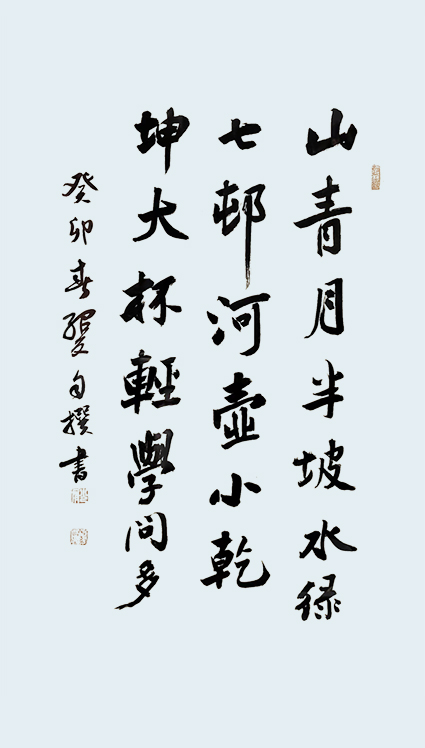 山青月半坡水绿
七邨河壺小乾
坤大杯輕學问多
癸卯春自撰書